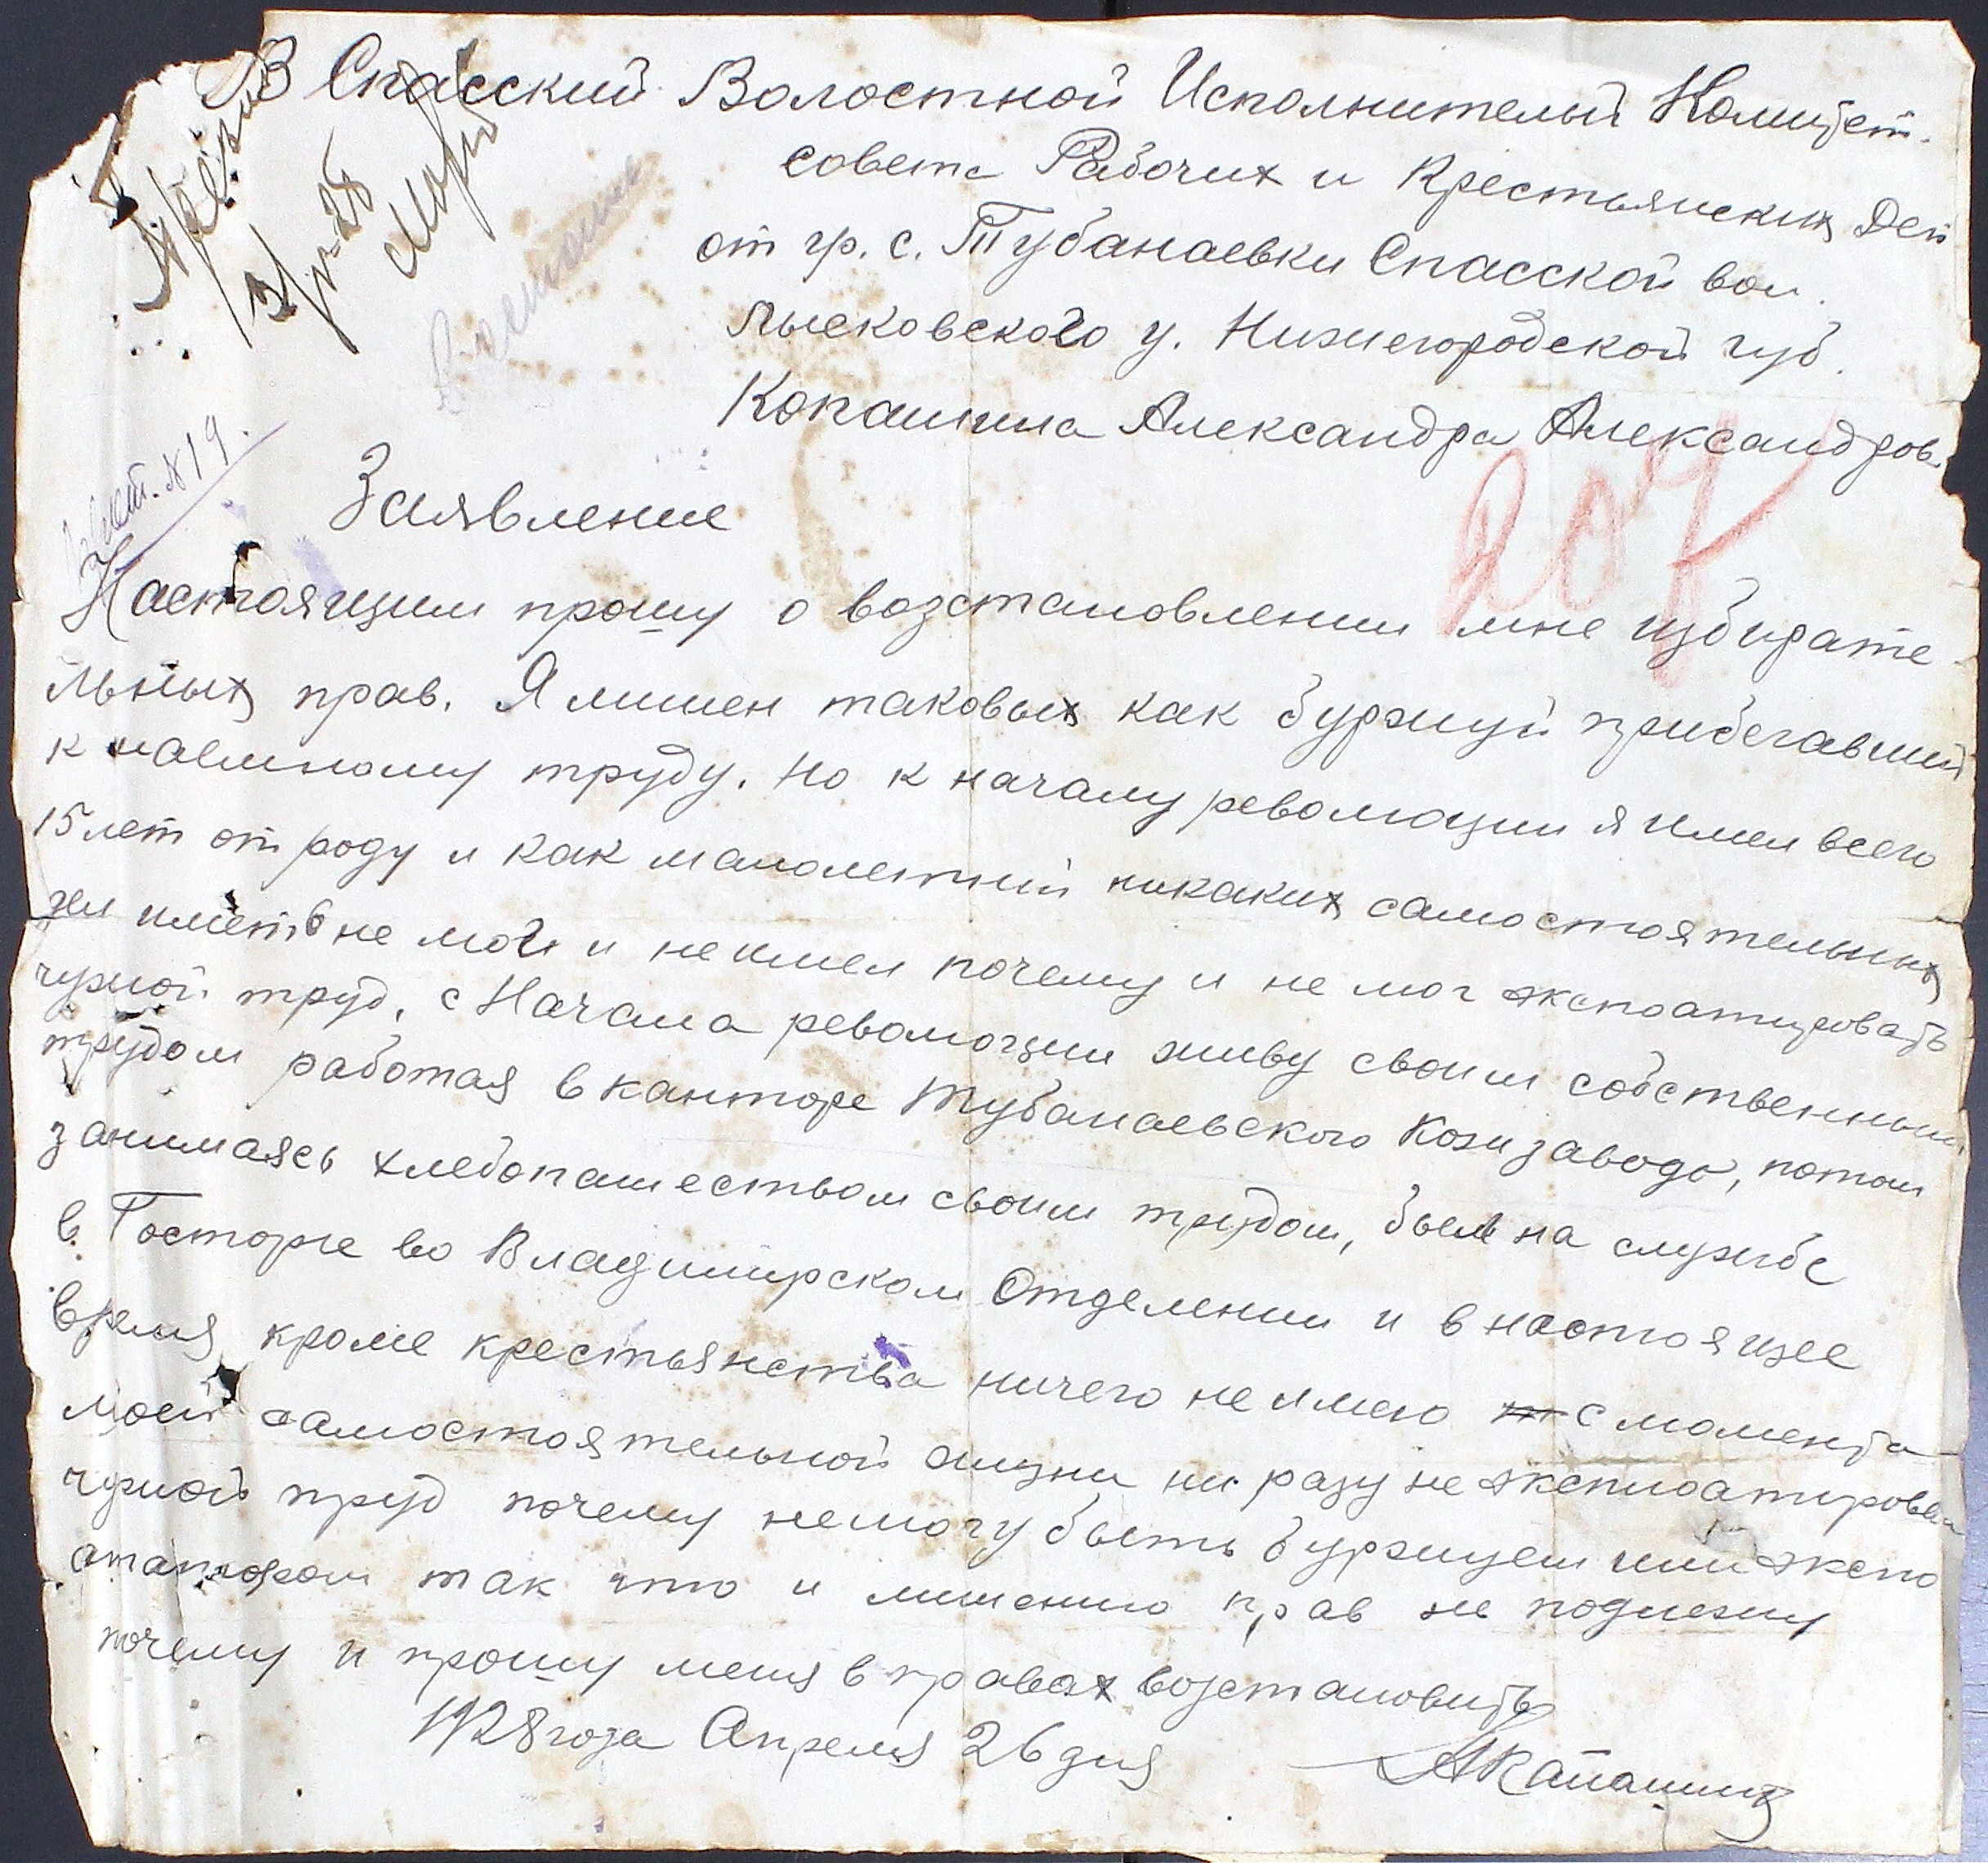 В Спасский Волостной Исполнителый Комитет.
совета Рабочих и Крестьянских Деп
от гр. с. Тубанаевки Спасской вол.
Лысковского у. Нижегородской губ.
Копашина Александра Александров.
№19.
207
Заявление
Настоящим прошу о возстановлении мне избирате-
льных прав. Я лишен таковых как буржуй прибегавший
к наемному труду. Но к началу революции я имел всего
15 лет от роду и как малолетний никаких самостоятельных
иметь не мог и не имел почему и не мог экспоатировать
чужой труд. с Начала революции живу своим собственным
трудом работая в канторе Тубанаевского Кожзавода, потом
занимаясь хлебопашеством своим трудом, был на службе
в Госторге во Владимирском Отделении и в настоящее
время кроме крестьянства ничего не имею с момента
моей самостоятельной жизни ни разу не эксплоатировал
чужой труд почему немогу быть буржуем или экспло
ататором так что и лишению прав не подлежу
почему и прошу меня в правах возстановить
1928 года Апреля 26 дня
АКапашинъ